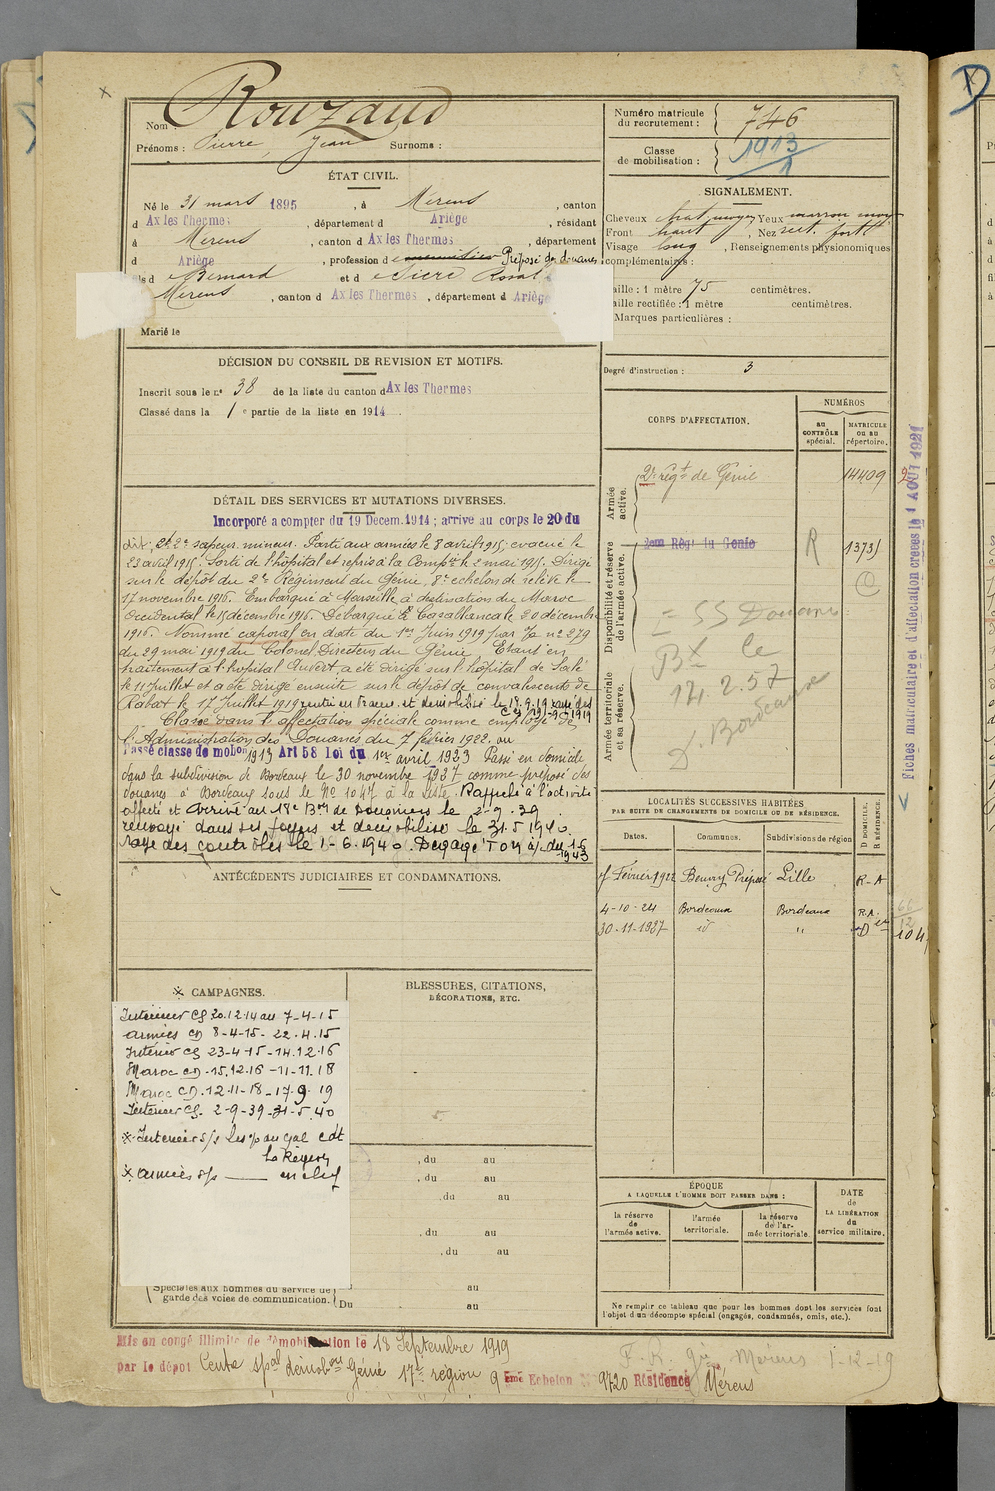 Nom : Rouzaud
Prénoms : Pierre, Jean Surnoms :
Numéro matricule du recrutement : 746
Classe de mobilisation : 1913
1
ÉTAT CIVIL.
Né le 31 mars 1895, à Mérens, canton
d Ax les Thermes, département d Ariège, résidant
à Mérens, canton d Ax les Thermes, département
d Ariège, profession de Préposé des douanes
ls d Bernard et d Sicre Rosal
Mérens, canton d Ax les Thermes, département d Ariège
Marié le
SIGNALEMENT.
Cheveux chat. moyen Yeux marron moy
Front haut, Nez rect. fort
Visage long, Renseignements physionomiques
complémentaires :
aille : 1 mètre 75 centimètres.
aille rectifiée : 1 mètre centimètres.
Marques particulières :
Degré d'instruction : 3
DÉCISION DU CONSEIL DE REVISION ET MOTIFS.
Inscrit sous le n° 38 de la liste du canton d Ax les Thermes
Classé dans la 1e partie de la liste en 1914
DÉTAIL DES SERVICES ET MUTATIONS DIVERSES.
Incorporé a compter du 19 Décem. 1914 ; arrivé au corps le 20 du
dit ; St 2e sapeur mineur. Parti aux armées le 8 avril 1915 ; évacué le
23 avril 1915. Sorti de l'hôpital et repris à la Compie le 2 mai 1915. Dirigé
sur le dépôt du 2e Régiment du Génie, 8e échelon de relève le
17 novembre 1916. Embarqué à Marseille à destination du Maroc
Occidental le 15 décembre 1916. Débarqué à Casablanca le 20 décembre
1916. Nommé caporal en date du 1er Juin 1919 par no 279
du 29 mai 1919 du Colonel Directeur du Génie. Etant en
traitement à l'hopital Aubert, a été dirigé sur l'hôpital de Salé
le 11 Juillet et a été dirigé ensuite sur le dépôt de convalescents de
Rabat le 17 Juillet 1919 rentré en France et démobilisé le 18.9.19 rayé des
Classé dans l'affectation spéciale comme employé de
l'Administration des Douanes du 7 février 1922.
Passé classe de mobon 1913 Art 58 Loi du 1er avril 1923 Passé en domicile
dans la subdivision de Bordeaux le 30 novembre 1927 comme préposé des
douanes à Bordeaux sous le No 1047 à la liste. Rappelé à l'activité
affecté et arrivé au 18e Bon de Douaniers le 2-9-39.
renvoyé dans ses foyers et démobilisé le 31.5.1940.
rayé des contrôles le 1-6-1940. Dégagé TOM à/c du 1.6
1943
CORPS D'AFFECTATION.
NUMÉROS
au CONTRÔLE spécial.
MATRICULE ou au répertoire.
Armée active.
2e régt de Génie 14409
Disponibilité et réserve de l'armée active.
2eme Régt du Génie R 1373
C
= SS Douanes
Bx le
14.2.57
D. Bordeaux
Armée territoriale et sa réserve.
Fiches matriculaire et d'affectation créées le 1 AOUT 1921
LOCALITÉS SUCCESSIVES HABITÉES
PAR SUITE DE CHANGEMENTS DE DOMICILE OU DE RÉSIDENCE.
Dates. Communes. Subdivisions de région D DOMICILE. R RÉSIDENCE.
7 Février 1922 Beuvry Préposé Lille R-A
4-10-24 Bordeaux Bordeaux R.A.
30-11-1927 id " D
ANTÉCÉDENTS JUDICIAIRES ET CONDAMNATIONS.
CAMPAGNES.
Intérieur CS 20.12.14 au 7-4-15
armées CD 8-4-15 - 22.4.15
Intérieur CS 23-4-15 - 14.12.16
Maroc CD - 15.12.16 - 11-11.18
Maroc CD. 12-11-18 - 17-9-19
Intérieur CS. 2-9-39 - 31-5.40
Intérieur s/s
la Région
armées s/s en chef
BLESSURES, CITATIONS,
DÉCORATIONS, ETC.
, du au
, du au
, du au
, du au
, du au
au
Spéciales aux hommes du service de
garde des voies de communication. Du au
ÉPOQUE
A LAQUELLE L'HOMME DOIT PASSER DANS :
la réserve de l'armée active.
l'armée territoriale.
la réserve de l'armée territoriale.
DATE de LA LIBÉRATION du service militaire.
Ne remplir ce tableau que pour les hommes dont les services font
l'objet d'un décompte spécial (engagés, condamnés, omis, etc.).
Mis en congé illimité de démobilisation le 18 Septembre 1919
par le dépôt Centre spal démobon Génie 17e région 9 ème Echelon N° 9720 Résidence Mérens
F. R. Mérens 1-12-19